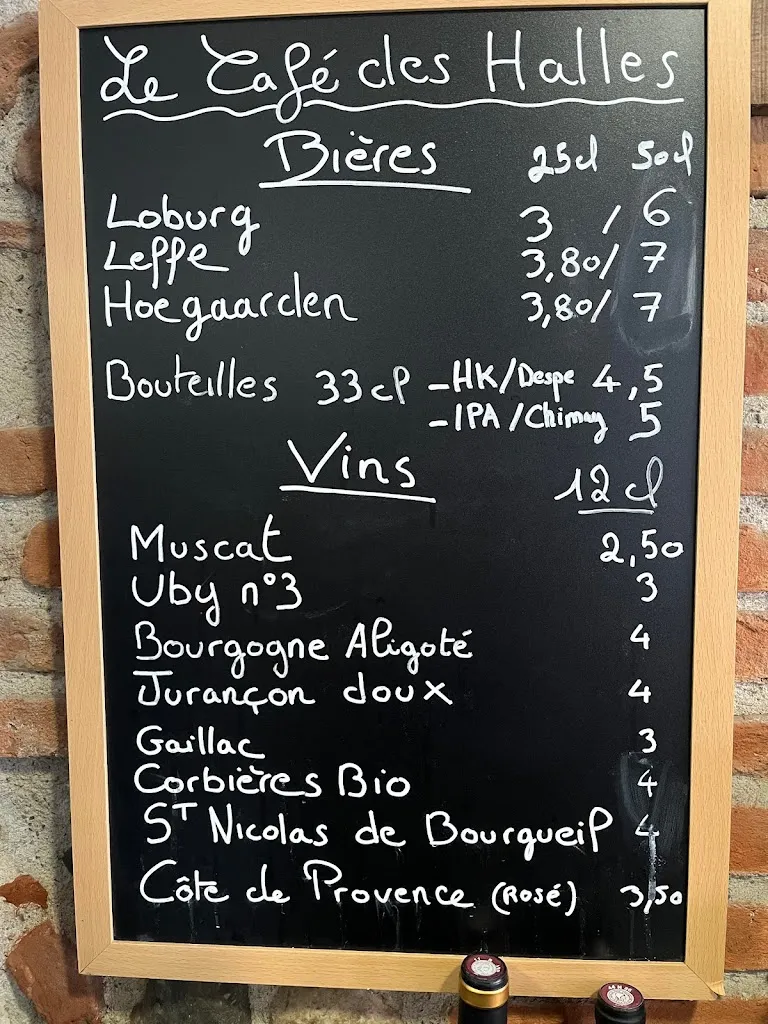 Le Café des Halles
Bières 25cl 50cl
Loburg 3 / 6
Leffe 3,80/ 7
Hoegaarden 3,80/ 7
Bouteilles 33cl -HK/Despe 4,5
-IPA/Chimay 5
Vins 12cl
Muscat 2,50
Uby n°3 3
Bourgogne Aligoté 4
Jurançon doux 4
Gaillac 3
Corbières Bio 4
ST Nicolas de Bourgueil 4
Côte de Provence (Rosé) 3,50